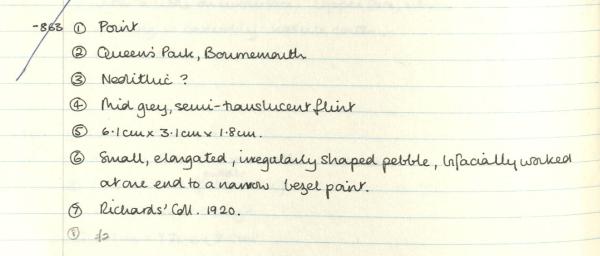 -863 ① Point
② Queen's Park, Bournemouth
③ Neolithic ?
④ Mid grey, semi-translucent flint
⑤ 6.1cm x 3.1cm x 1.8cm.
⑥ Small, elongated, irregularly shaped pebble, bifacially worked
at one end to a narrow bezel point.
⑦ Richards' Coll. 1920.
⑧